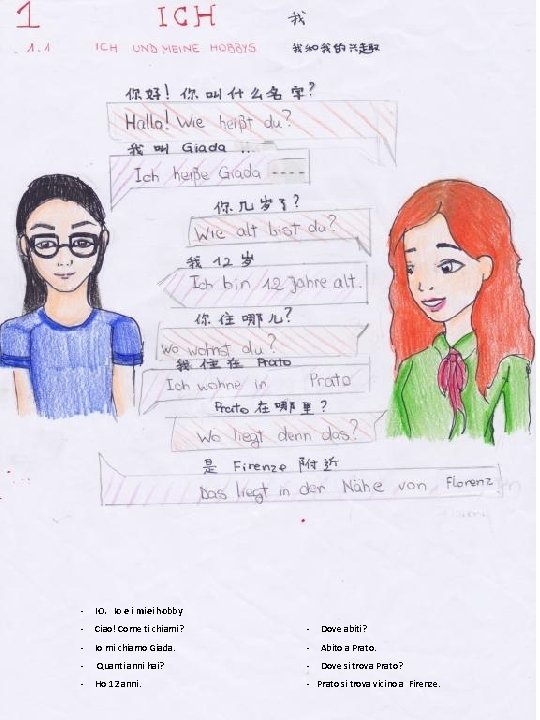 1 ICH 我
1.1 ICH UND MEINE HOBBYS 我和我的兴趣
你好! 你叫什么名字?
Hallo! Wie heißt du?
我叫 Giada ...
Ich heiße Giada
你几岁了?
Wie alt bist du?
我 12 岁
Ich bin 12 Jahre alt.
你住哪儿?
Wo wohnst du?
我住在 Prato
Ich wohne in Prato
Prato 在哪里?
Wo liegt denn das?
是 Firenze 附近
Das liegt in der Nähe von Florenz
- IO. Io e i miei hobby
- Ciao! Come ti chiami?
- Io mi chiamo Giada.
- Quanti anni hai?
- Ho 12 anni.
- Dove abiti?
- Abito a Prato.
- Dove si trova Prato?
- Prato si trova vicino a Firenze.